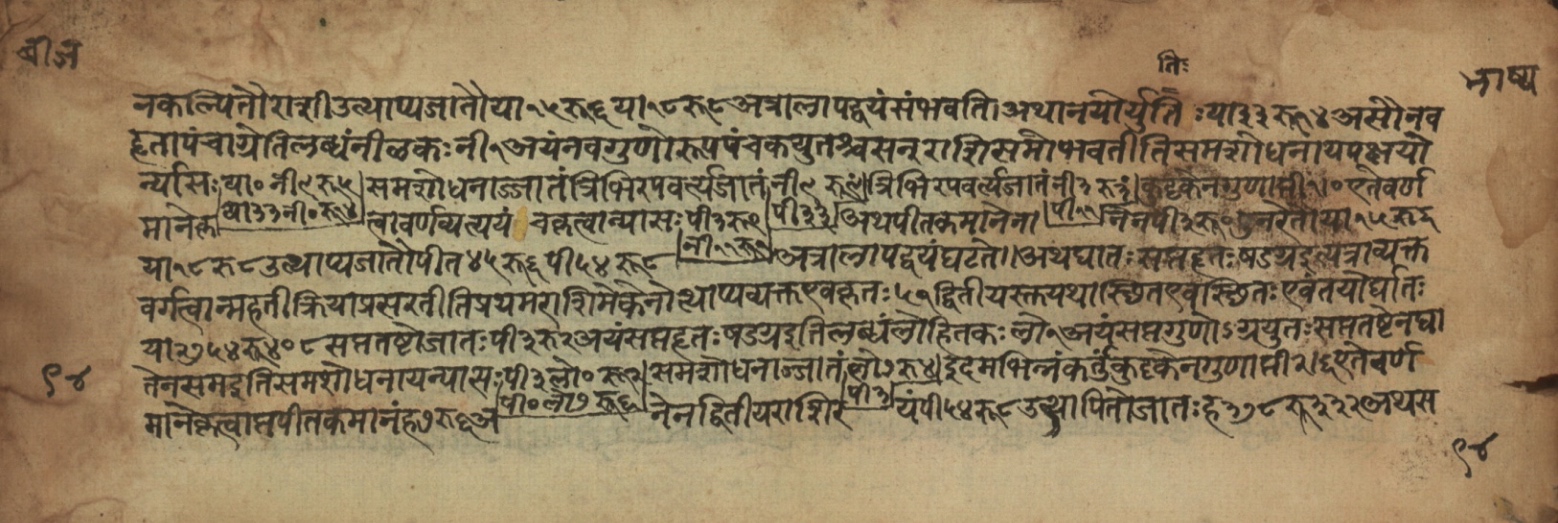 बीज
भाष्य
तिः
नकल्पितौराशीउत्थाप्यजातौया१५रू६या१८रू८अत्रालापद्वयंसंभवति।अथानयोर्युतिःया३३रू१४असौनव
हृतापंचाग्रेतिलब्धंनीलकःनी१अयंनवगुणोरूपपंचकयुतश्चसन्राशिसमोभवतीतिसमशोधनायपक्षयो
र्न्यासःया०नी९रू५समशोधनाज्जातंत्रिभिरपवर्त्यजातंनी९रू९त्रिभिरपवर्त्यजातंनी३रू३कुट्टकेनगुणाप्तीएतेवर्ण
माने या३३नी०रू१४ त्वावर्णव्यत्ययं चकृत्वान्यासःपी३रू० अथपीतकमानेना नेनपी पुनरेतौया१५रू६
या१८रू८उत्थाप्यजातौपीत४५रू६पी५४रू८ नी११रू अत्रालापद्वयंघटते॥अथघातःसप्तहृतःषडग्रइत्यत्राव्यक्त
वर्गत्वान्महतीक्रियाप्रसरतीतिप्रथमराशिमेकेनोत्थाप्यव्यक्तएवकृतः५१द्वितीयस्तुयथास्थितएवस्थितःएवंतयोर्घातः
या२७५४रू४०८सप्ततष्टोजातःपी३रू२अयंसप्तहृतःषडग्रइतिलब्धंलोहितकःलो१अयंसप्तगुणोऽग्रयुतःसप्ततष्टेनघा
तेनसमइतिसमशोधनायन्यासःपी३लो०रू२समशोधनाज्जातंलो७रू४इदमभिन्नंकर्तुंकुट्टकेनगुणाप्तीएतेवर्ण
माने पी०लो७रू६ पीतकमानंह७रू६अ नेनद्वितीयराशिर यंपी५४रू८उत्थापितोजातःह३७८रू३३२अथस
९४
९४